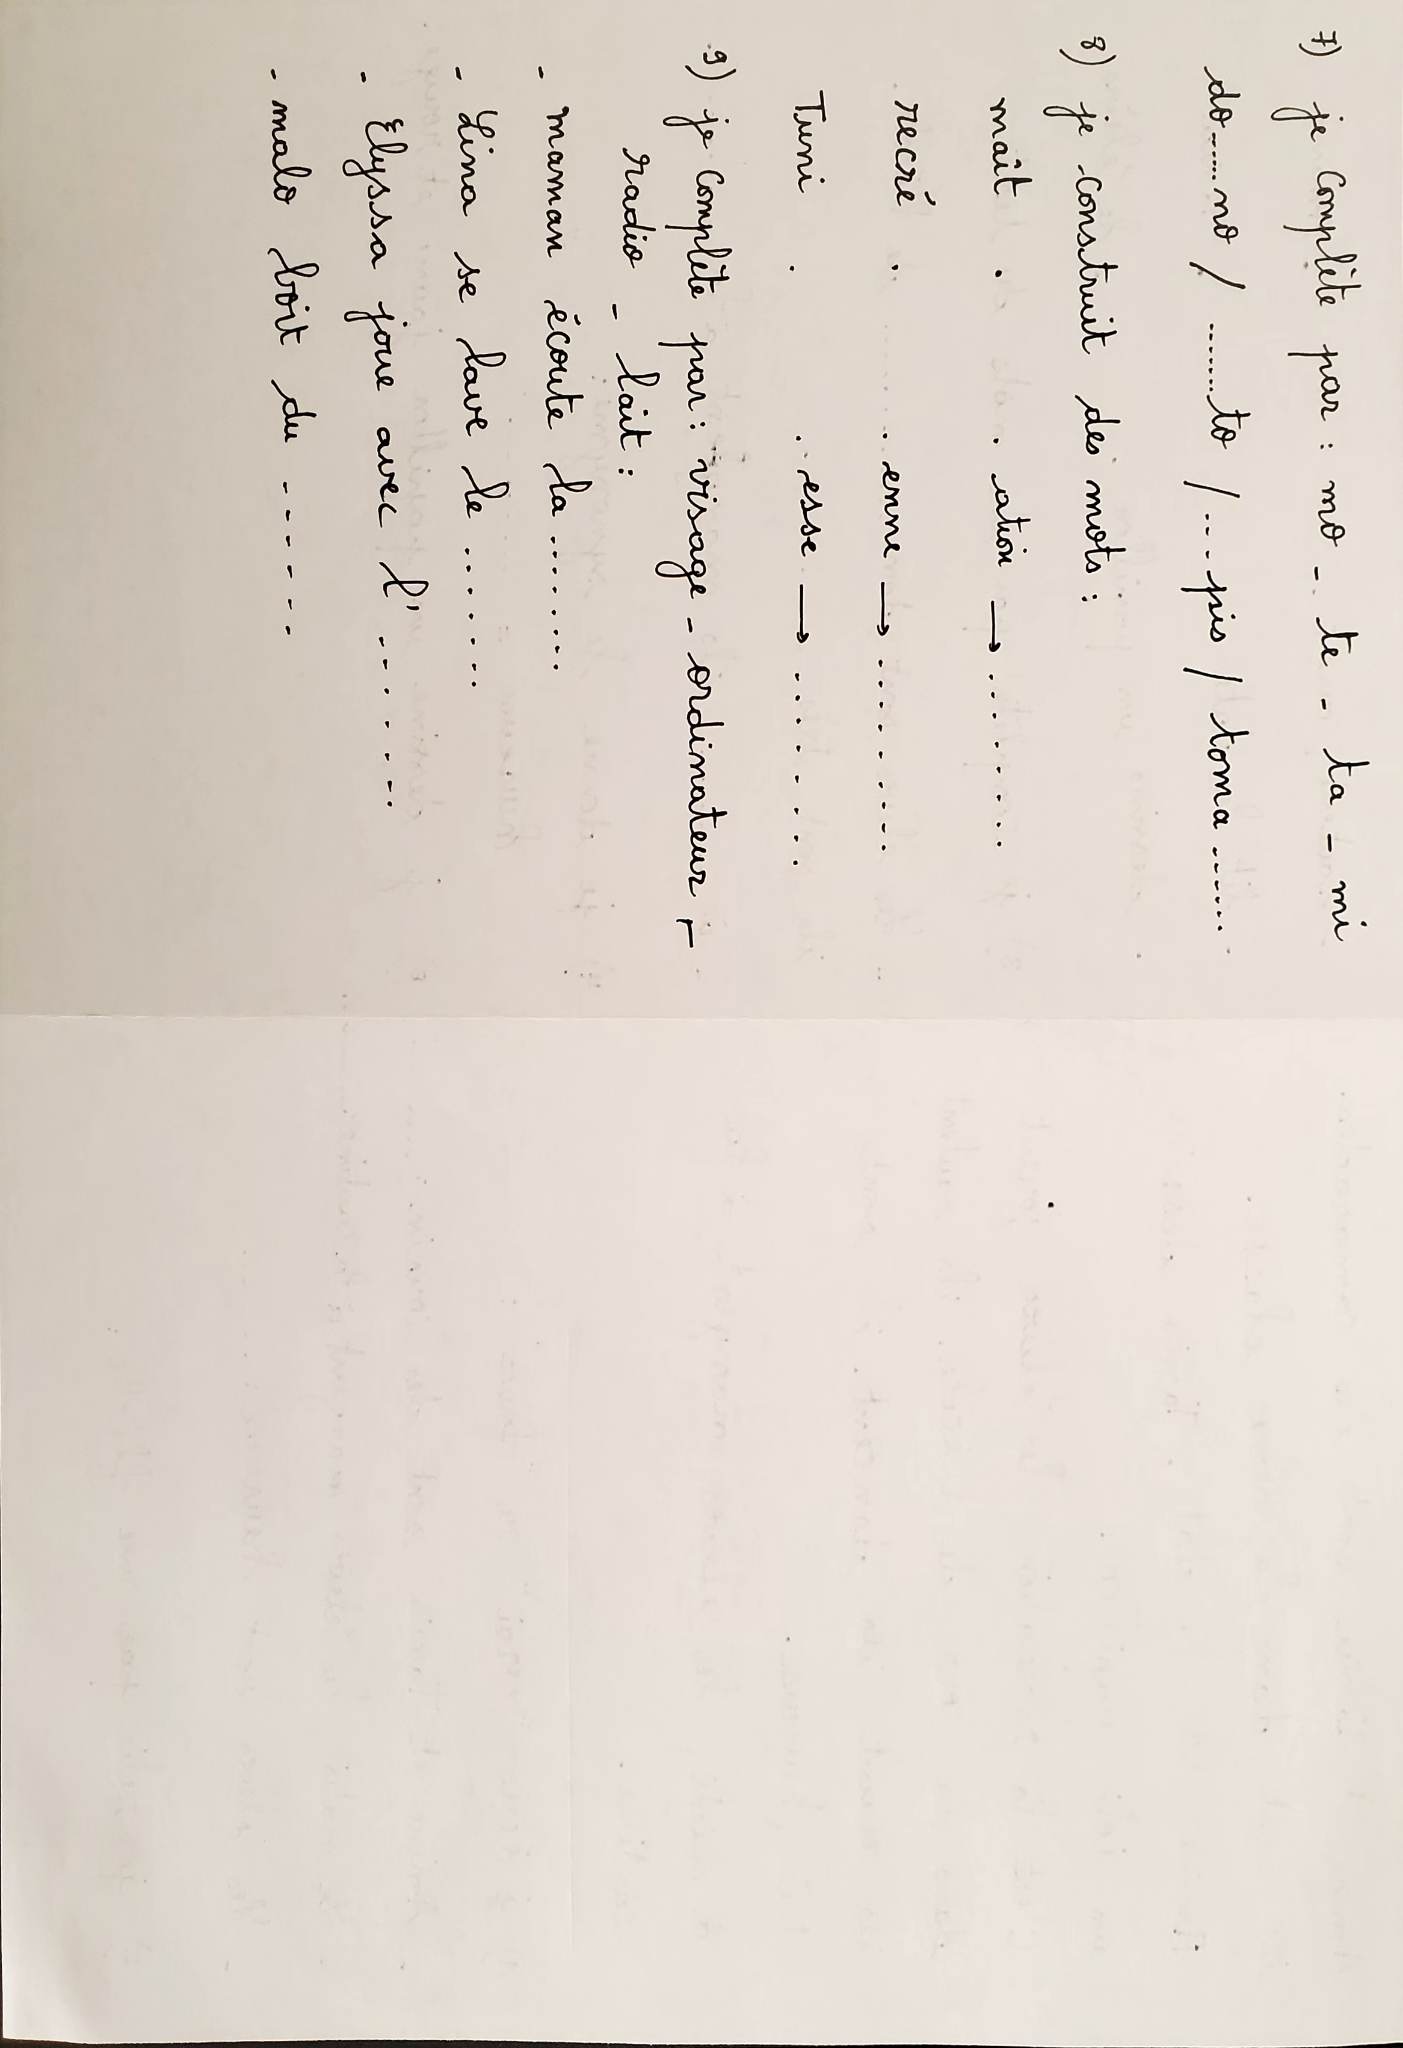 7) je complète par : mo - te - ta - mi
do......no / .......to / ....pis / toma......
8) je construit des mots :
maît . . ation → ........
recré . . enne → ........
Tuni . . esse → ........
9) je complète par : visage - ordinateur -
radio - lait :
- maman écoute la ........
- Lina se lave le .......
- Elyssa joue avec l' .......
- malo boit du ------